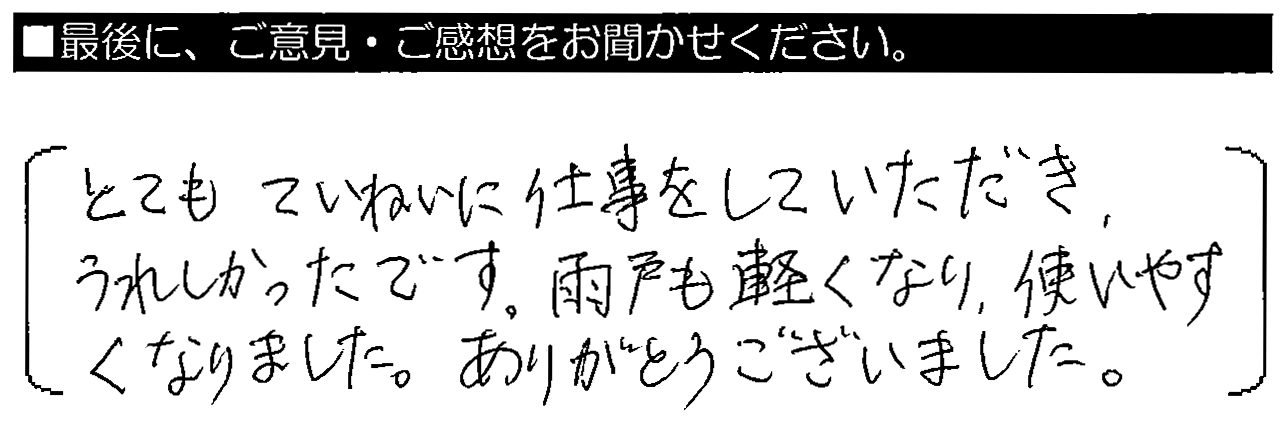 ■最後に、ご意見・ご感想をお聞かせください。
とても ていねいに仕事をしていただき,
うれしかったです。雨戸も軽くなり, 使いやす
くなりました。ありがとうございました。